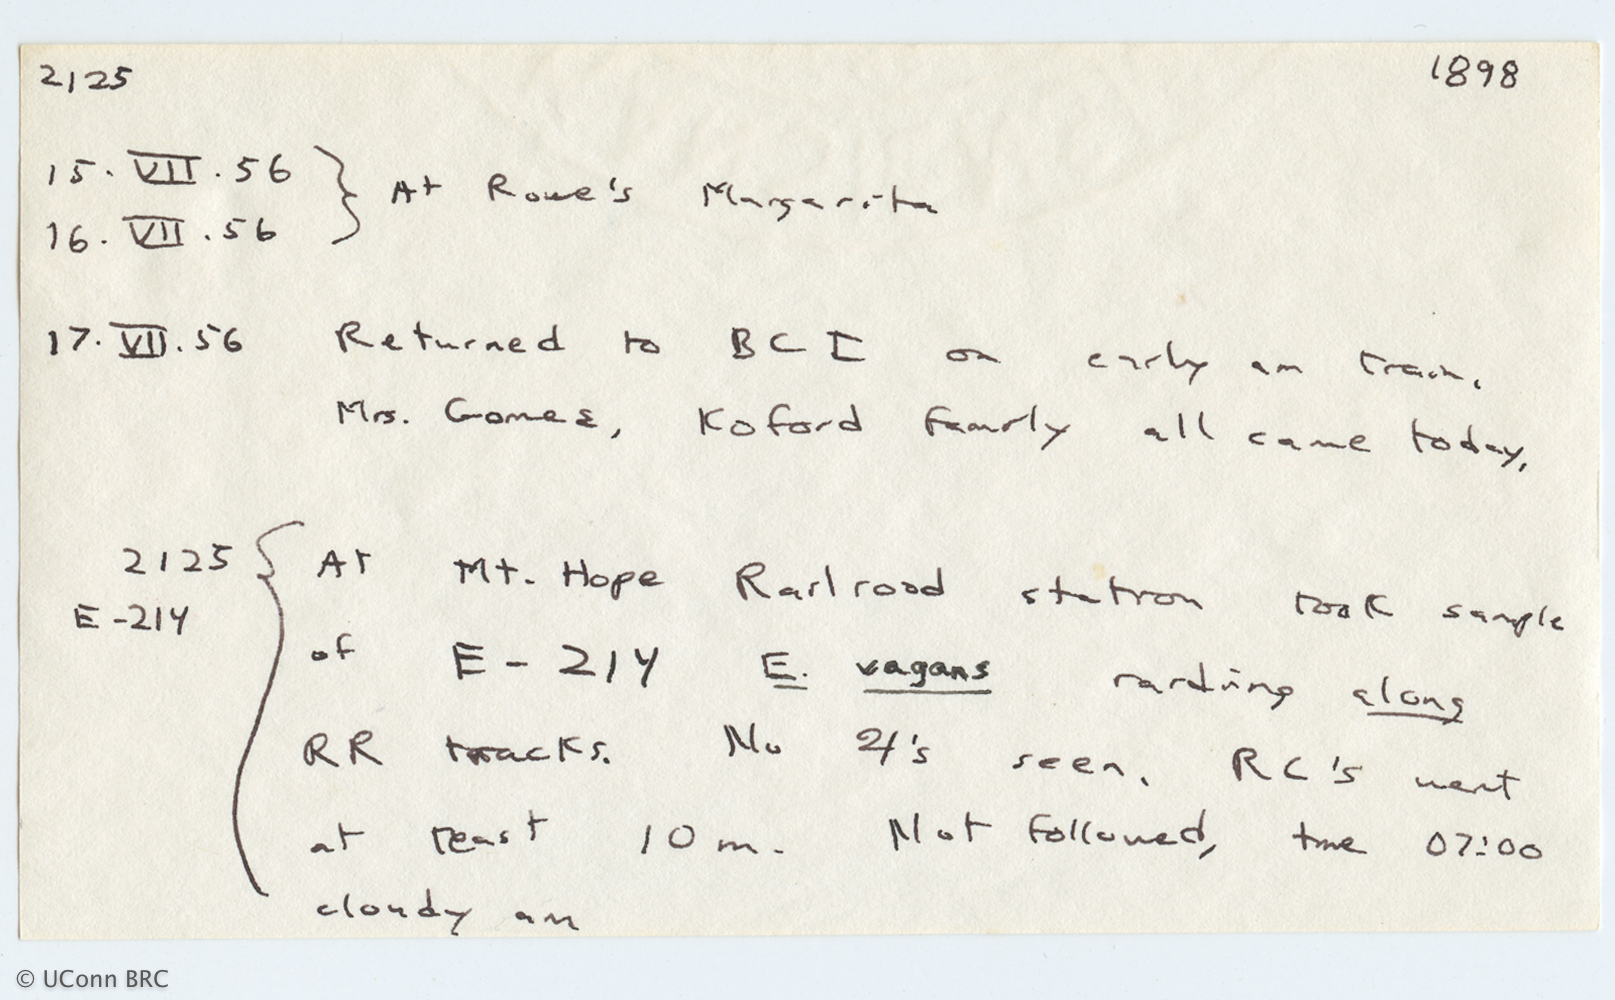 2125 1898
15. VII. 56 } At Rowe's Margarita
16. VII. 56
17. VII. 56 Returned to BCI on early am train.
Mrs. Gomez, Koford family all came today.
2125 { At Mt. Hope Railroad station took sample
E-214
of E-214 E. vagans raiding along
RR tracks. No 's seen. RC's went
at least 10 m. Not followed, time 07:00
cloudy am
© UConn BRC